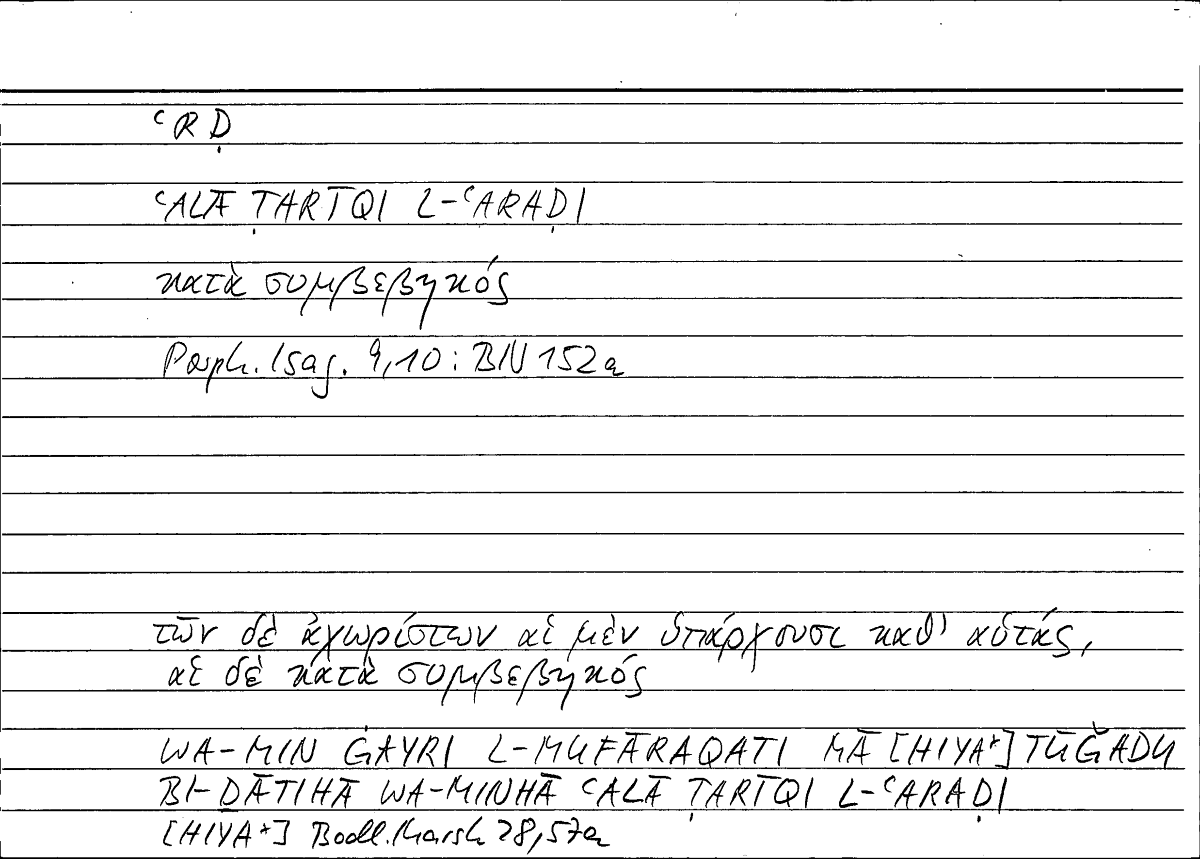 ʿRḌ
ʿALĀ ṬARĪQI L-ʿARAḌI
κατὰ συμβεβηκός
Porph. Isag. 9,10: BN 152a
τῶν δὲ ἀχωρίστων αἱ μὲν ὑπάρχουσι καθ' αὑτάς,
αἱ δὲ κατὰ συμβεβηκός
WA-MIN ĠAYRI L-MUFĀRAQATI MĀ [HIYA*] TŪǦADU
BI-ḎĀTIHĀ WA-MINHĀ ʿALĀ ṬARĪQI L-ʿARAḌI
[HIYA*] Bodl. Marsh 28,57a